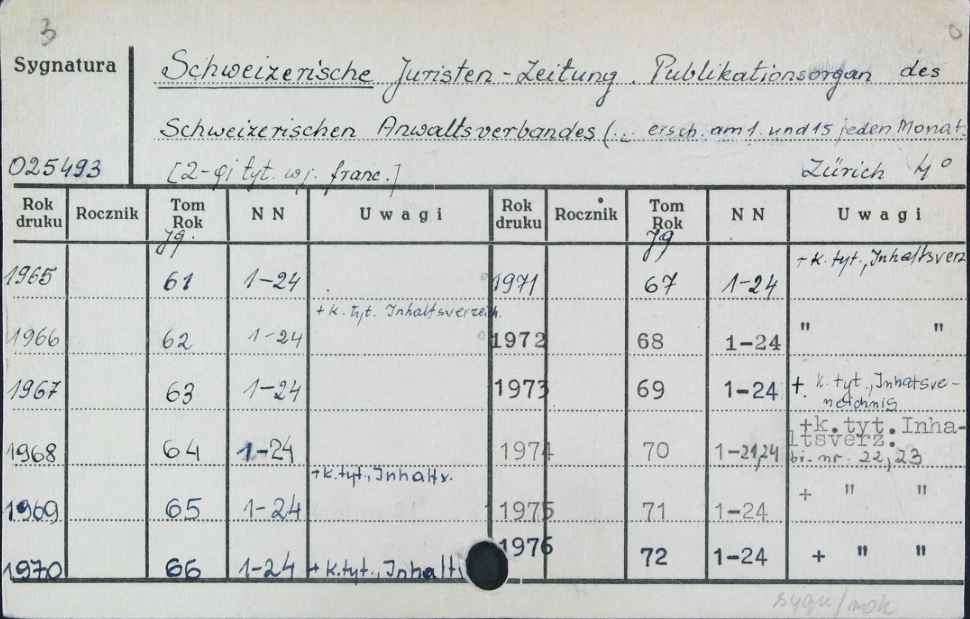 3
Sygnatura Schweizerische Juristen-Zeitung. Publikationsorgan des
Schweizerischen Anwaltsverbandes (... ersch. am 1. und 15 jeden Monat.
025493 [2-gi tyt. w j. franc.] Zürich 4°
Rok druku Rocznik Tom Rok NN Uwagi Rok druku Rocznik Tom Rok NN Uwagi
Jg. Jg
1965 61 1-24 1971 67 1-24 + k. tyt., Inhaltsverz
1966 62 1-24 + k. tyt. Inhaltsverzeich. 1972 68 1-24 " "
1967 63 1-24 1973 69 1-24 + k. tyt., Inhatsve-
neichnis
1968 64 1-24 1974 70 1-21,24 +k.tyt.Inha-
ltsverz.
bi. nr. 22,23
1969 65 1-24 +k.tyt., Inhalts. 1975 71 1-24 + " "
1970 66 1-24 + k.tyt., Inhalti 1976 72 1-24 + " "